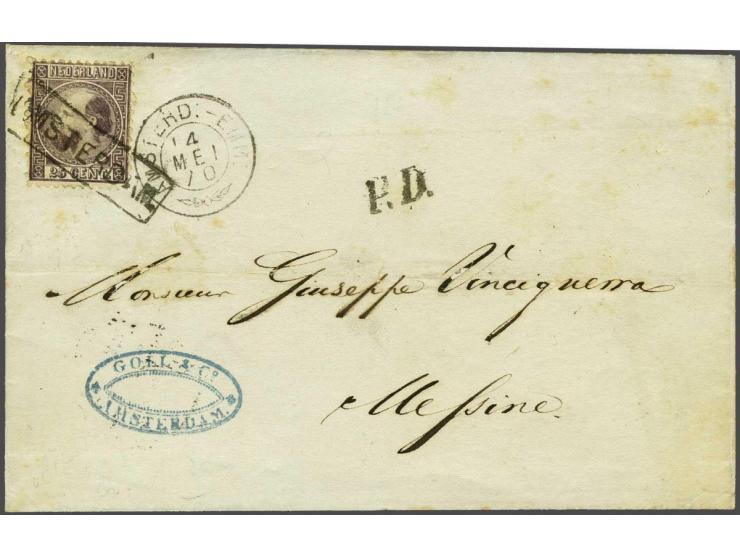 NEDERLAND
25 CENT
AMSTERDAM
AMSTERD:-EMM
14
MEI
70
P.D.
Monsieur Giuseppe Vinciguerra
GOLL & Co
AMSTERDAM.
Messine.